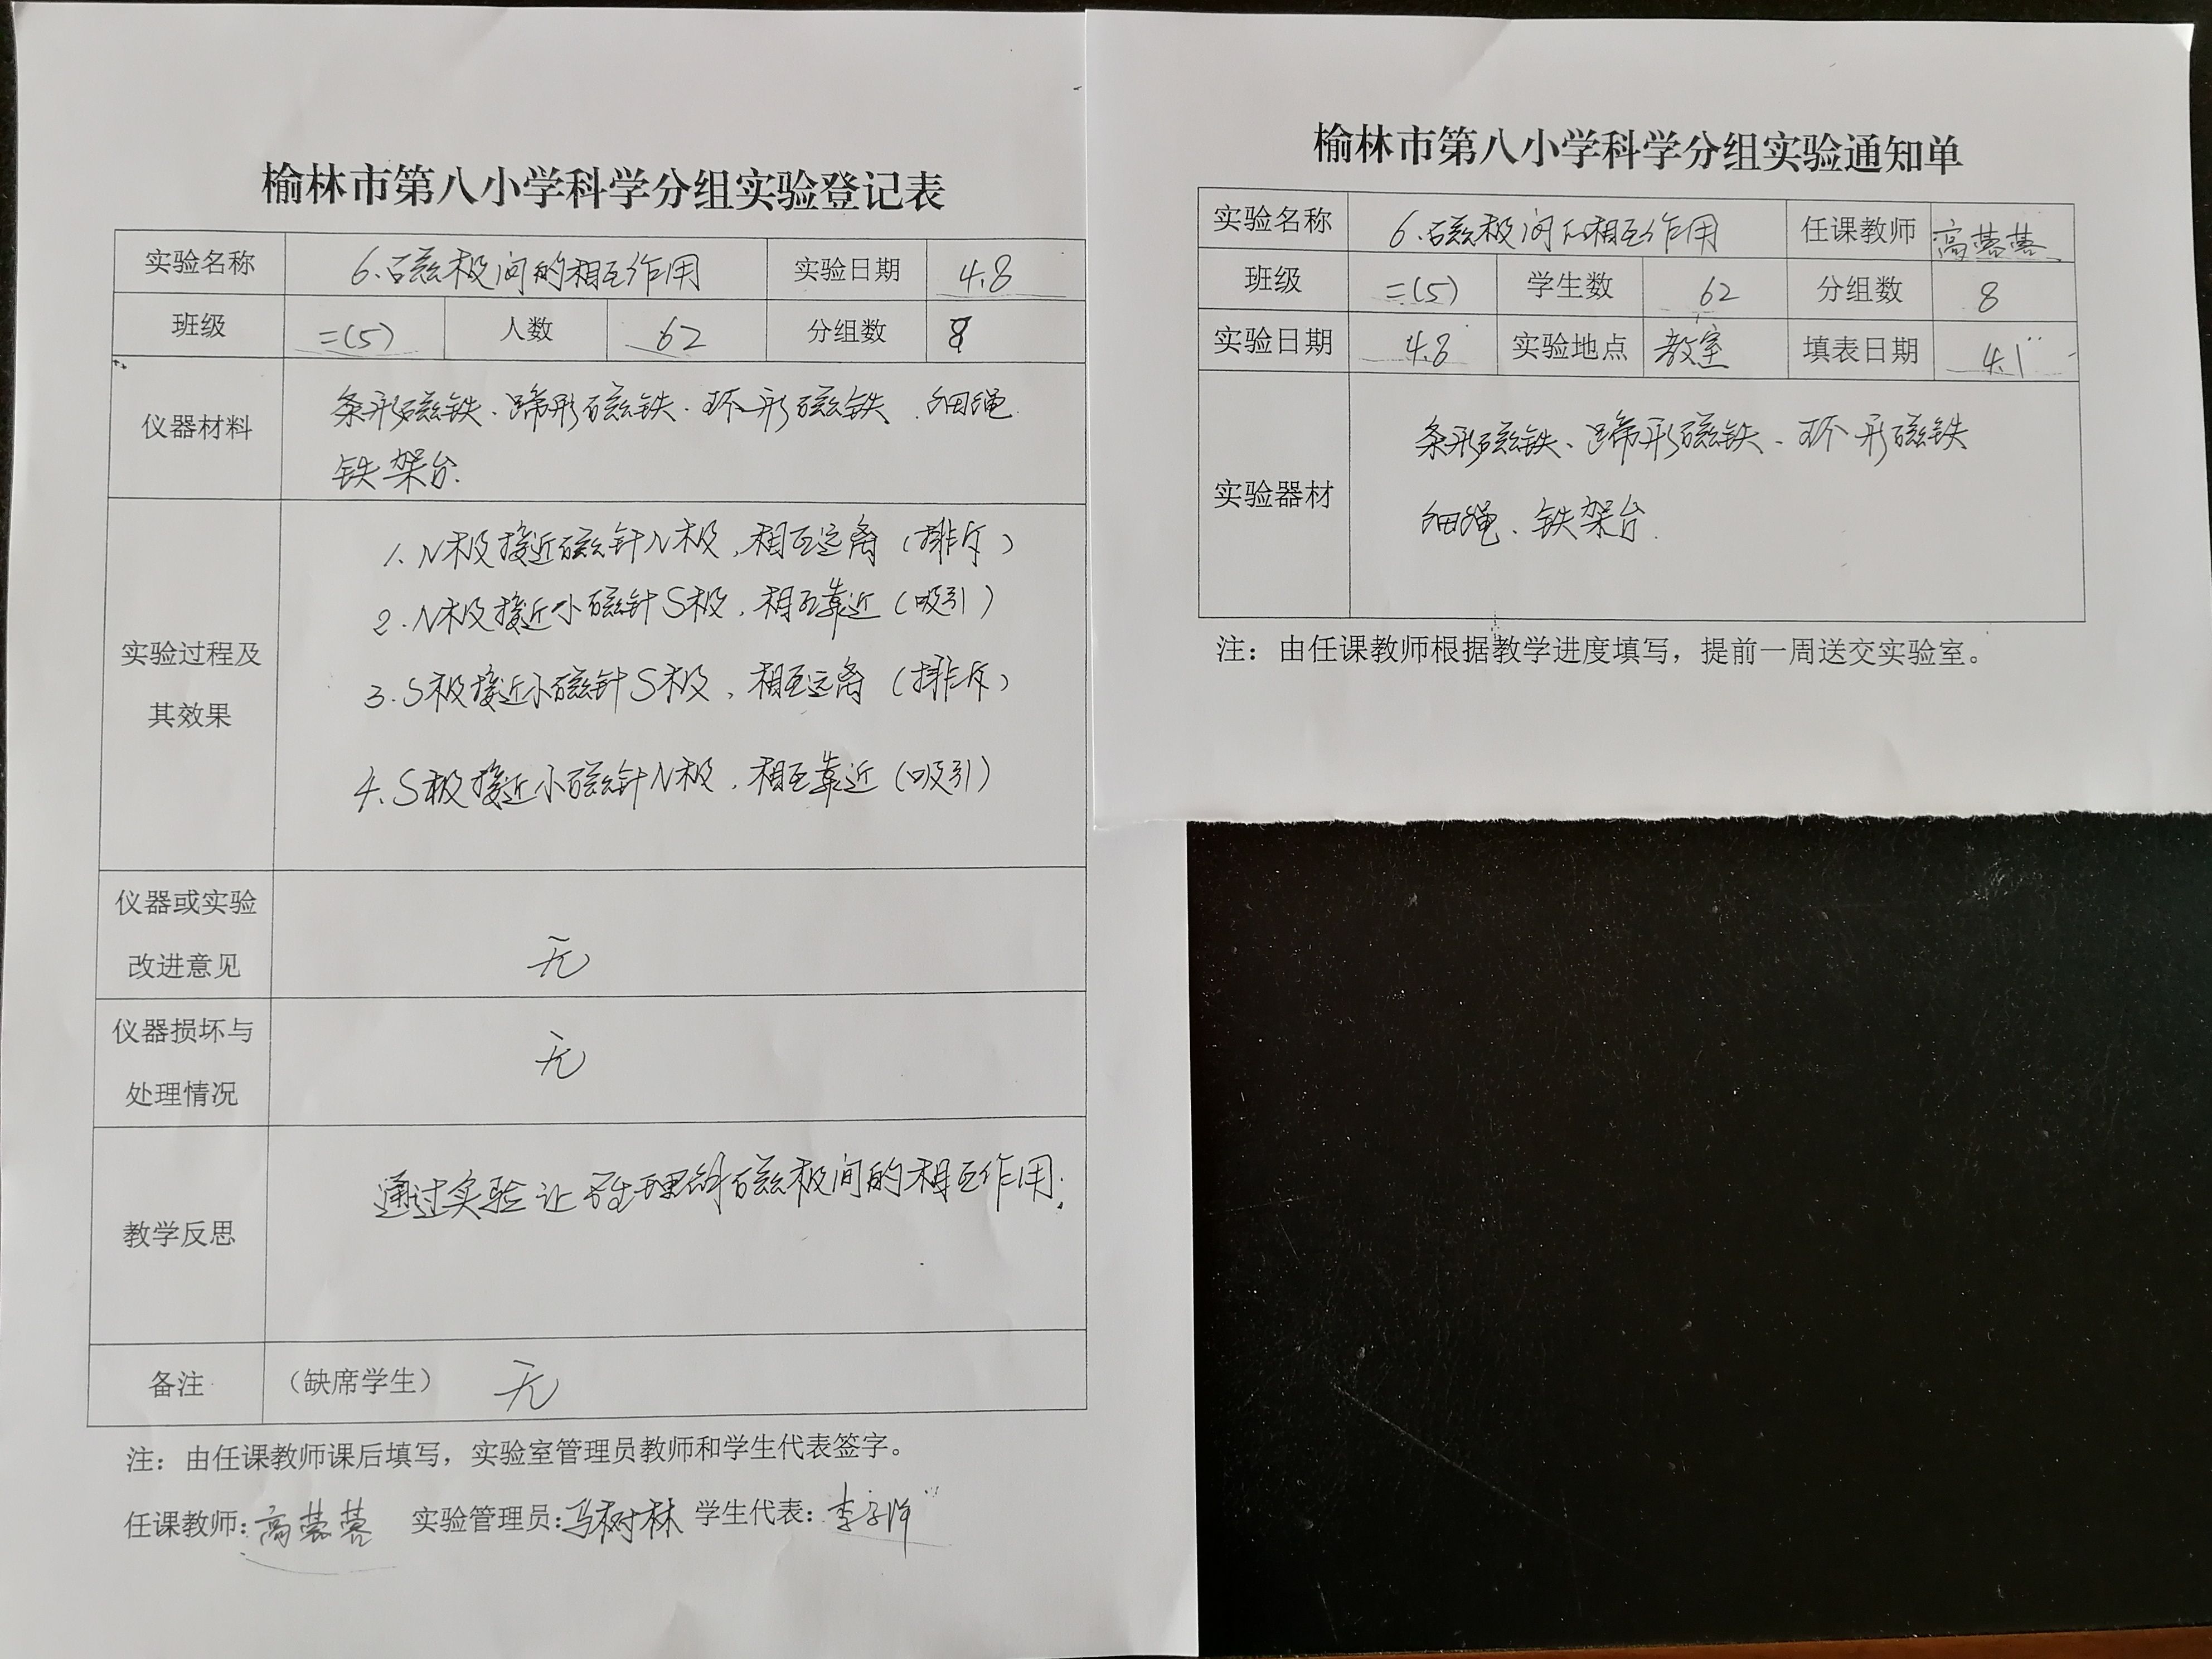 榆林市第八小学科学分组实验登记表
实验名称 6.磁极间的相互作用 实验日期 4.8
班级 二(5) 人数 62 分组数 8
仪器材料 条形磁铁、蹄形磁铁、环形磁铁 细绳
铁架台.
实验过程及
其效果
1.N极接近磁针N极,相互远离(排斥)
2.N极接近小磁针S极,相互靠近(吸引)
3.S极接近小磁针S极,相互远离(排斥)
4.S极接近小磁针N极,相互靠近(吸引)
仪器或实验
改进意见 无
仪器损坏与
处理情况 无
教学反思 通过实验让 理解磁极间的相互作用.
备注 (缺席学生) 无
注:由任课教师课后填写,实验室管理员教师和学生代表签字。
任课教师:高蓉蓉 实验管理员:马树林 学生代表:李子
榆林市第八小学科学分组实验通知单
实验名称 6.磁极间的相互作用 任课教师 高蓉蓉
班级 二(5) 学生数 62 分组数 8
实验日期 4.8 实验地点 教室 填表日期 4.1
实验器材 条形磁铁、蹄形磁铁、环形磁铁
细绳、铁架台.
注:由任课教师根据教学进度填写,提前一周送交实验室。